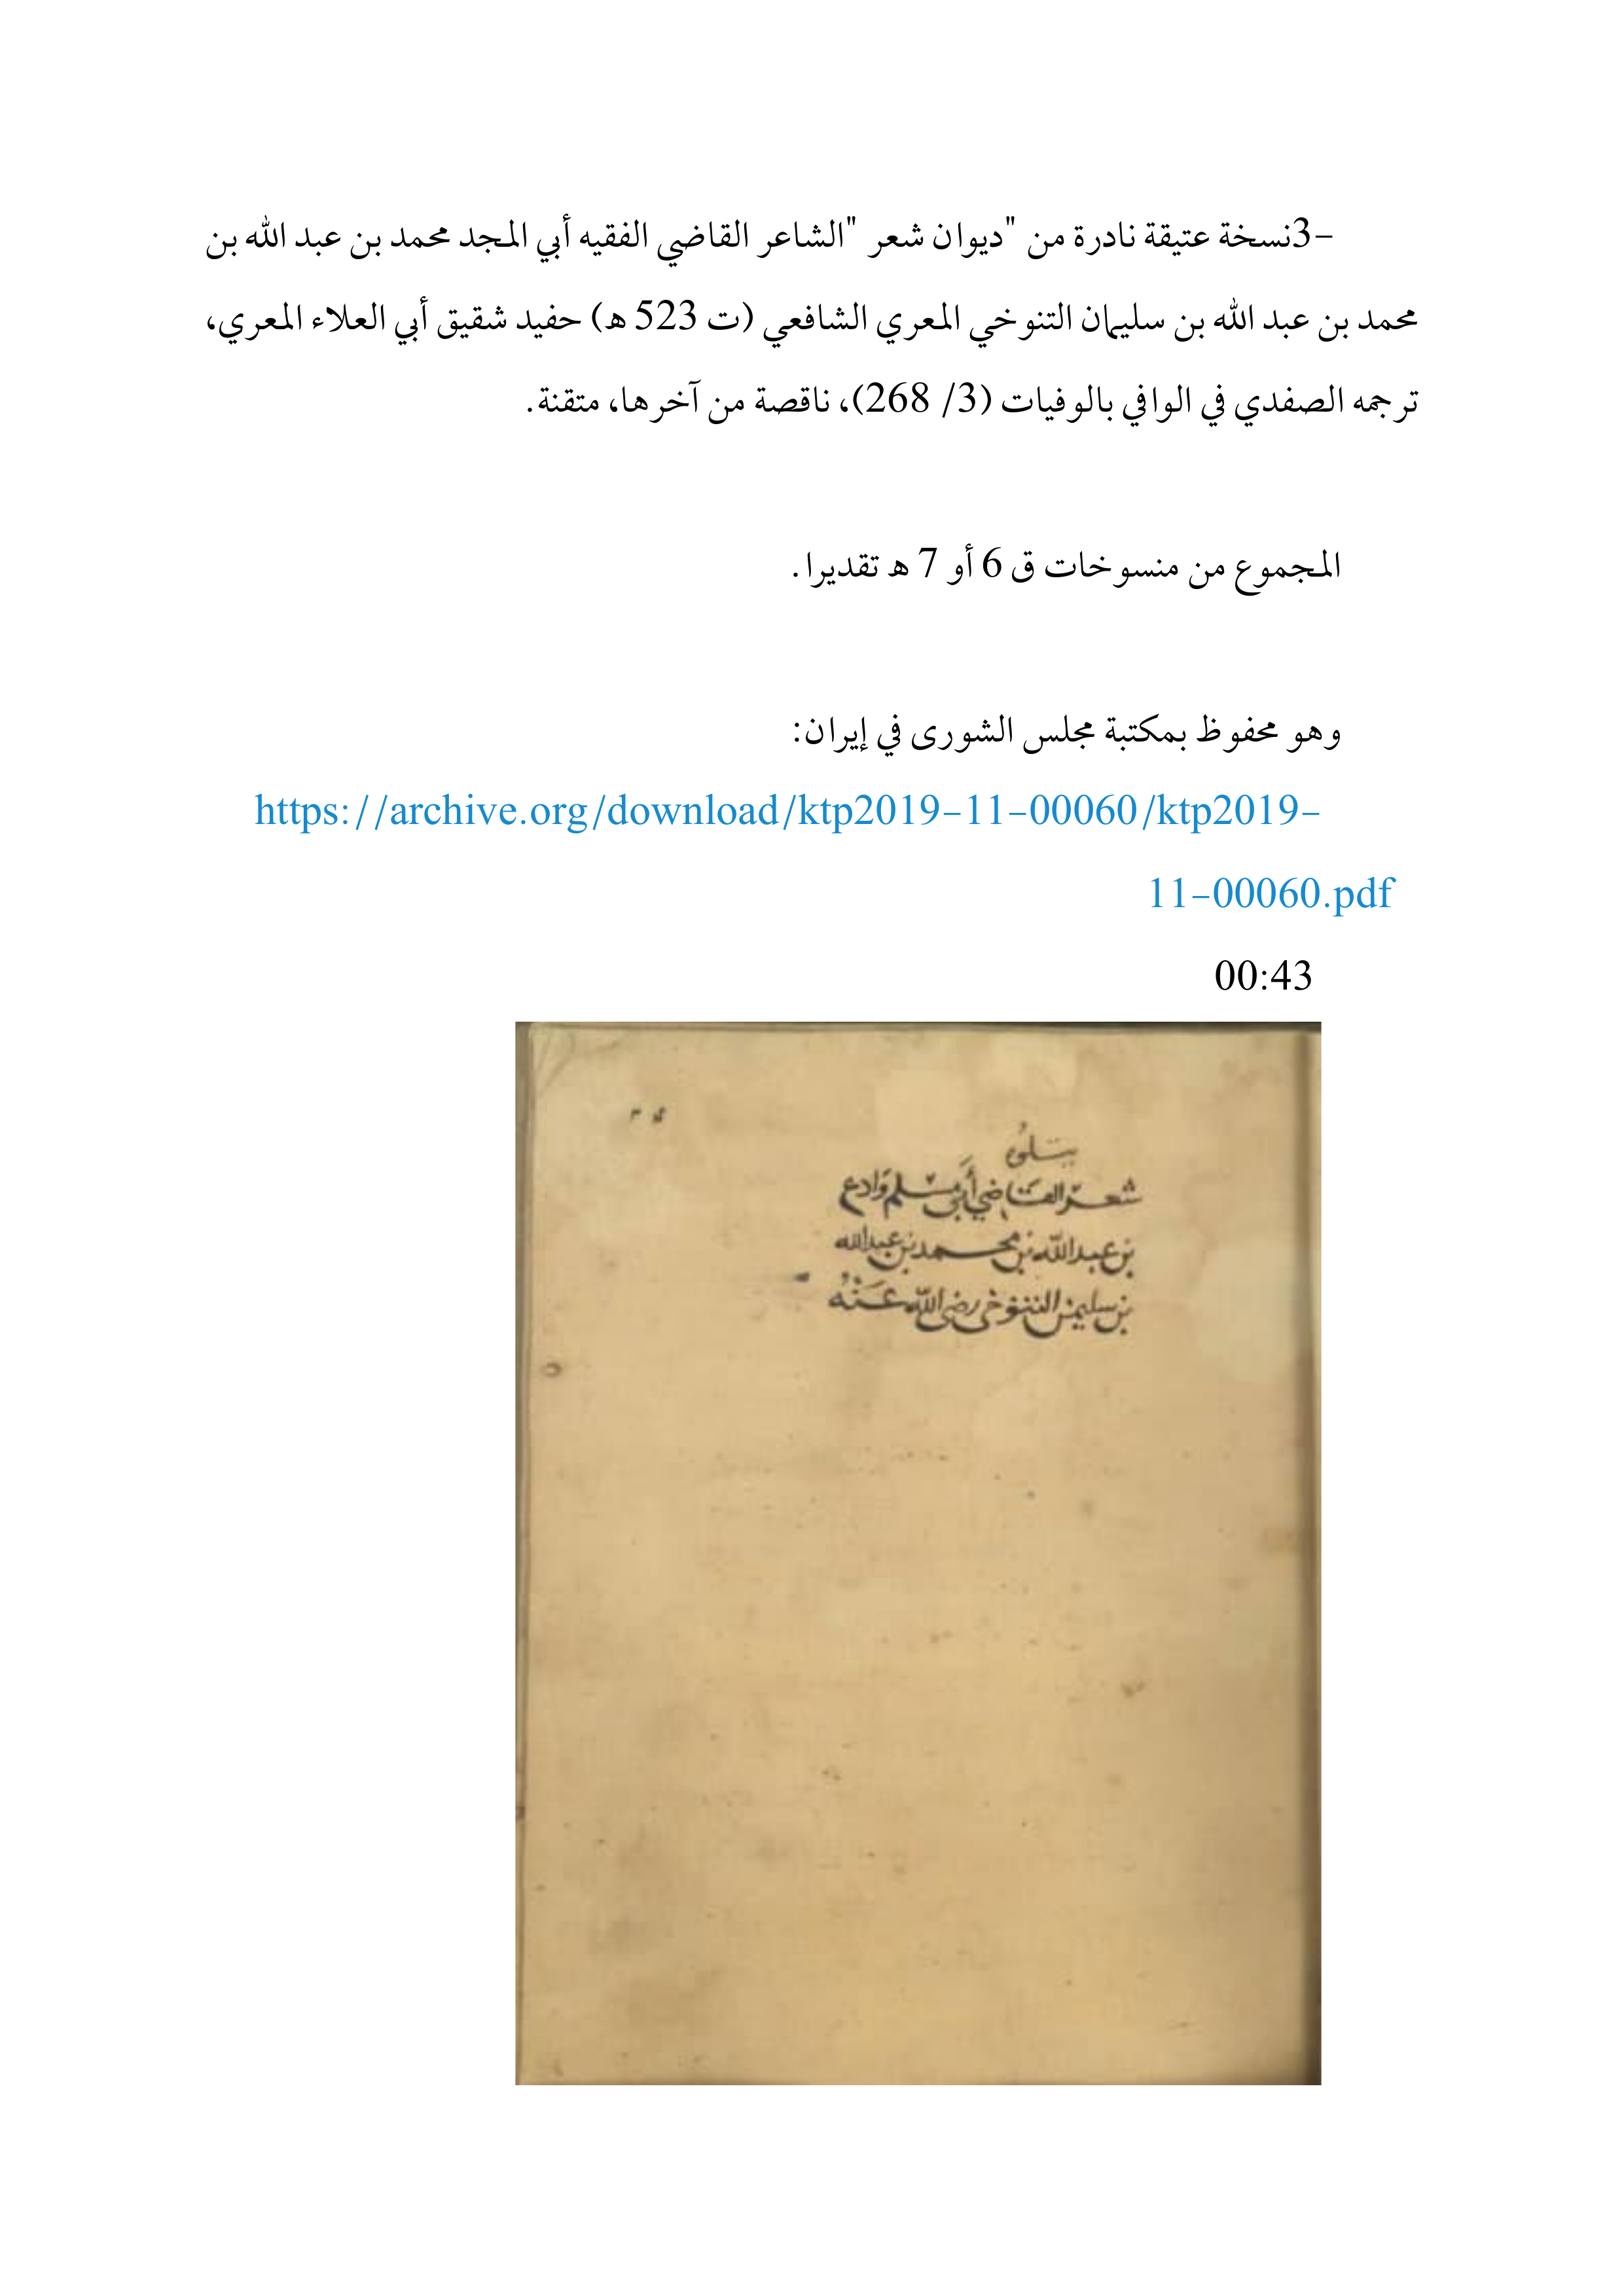 3-نسخة عتيقة نادرة من "ديوان شعر "الشاعر القاضي الفقيه أبي المجد محمد بن عبد الله بن
محمد بن عبد الله بن سليمان التنوخي المعري الشافعي (ت 523 هـ) حفيد شقيق أبي العلاء المعري،
ترجمه الصفدي في الوافي بالوفيات (3/ 268)، ناقصة من آخرها، متقنة.
المجموع من منسوخات ق 6 أو 7 هـ تقديرا.
وهو محفوظ بمكتبة مجلس الشورى في إيران:
https://archive.org/download/ktp2019-11-00060/ktp2019-
11-00060.pdf
00:43
يتلوه
شعر القاضي أبي مسلم وادع
بن عبد الله بن محمد بن عبد الله
بن سليمن التنوخي رضي الله عنه